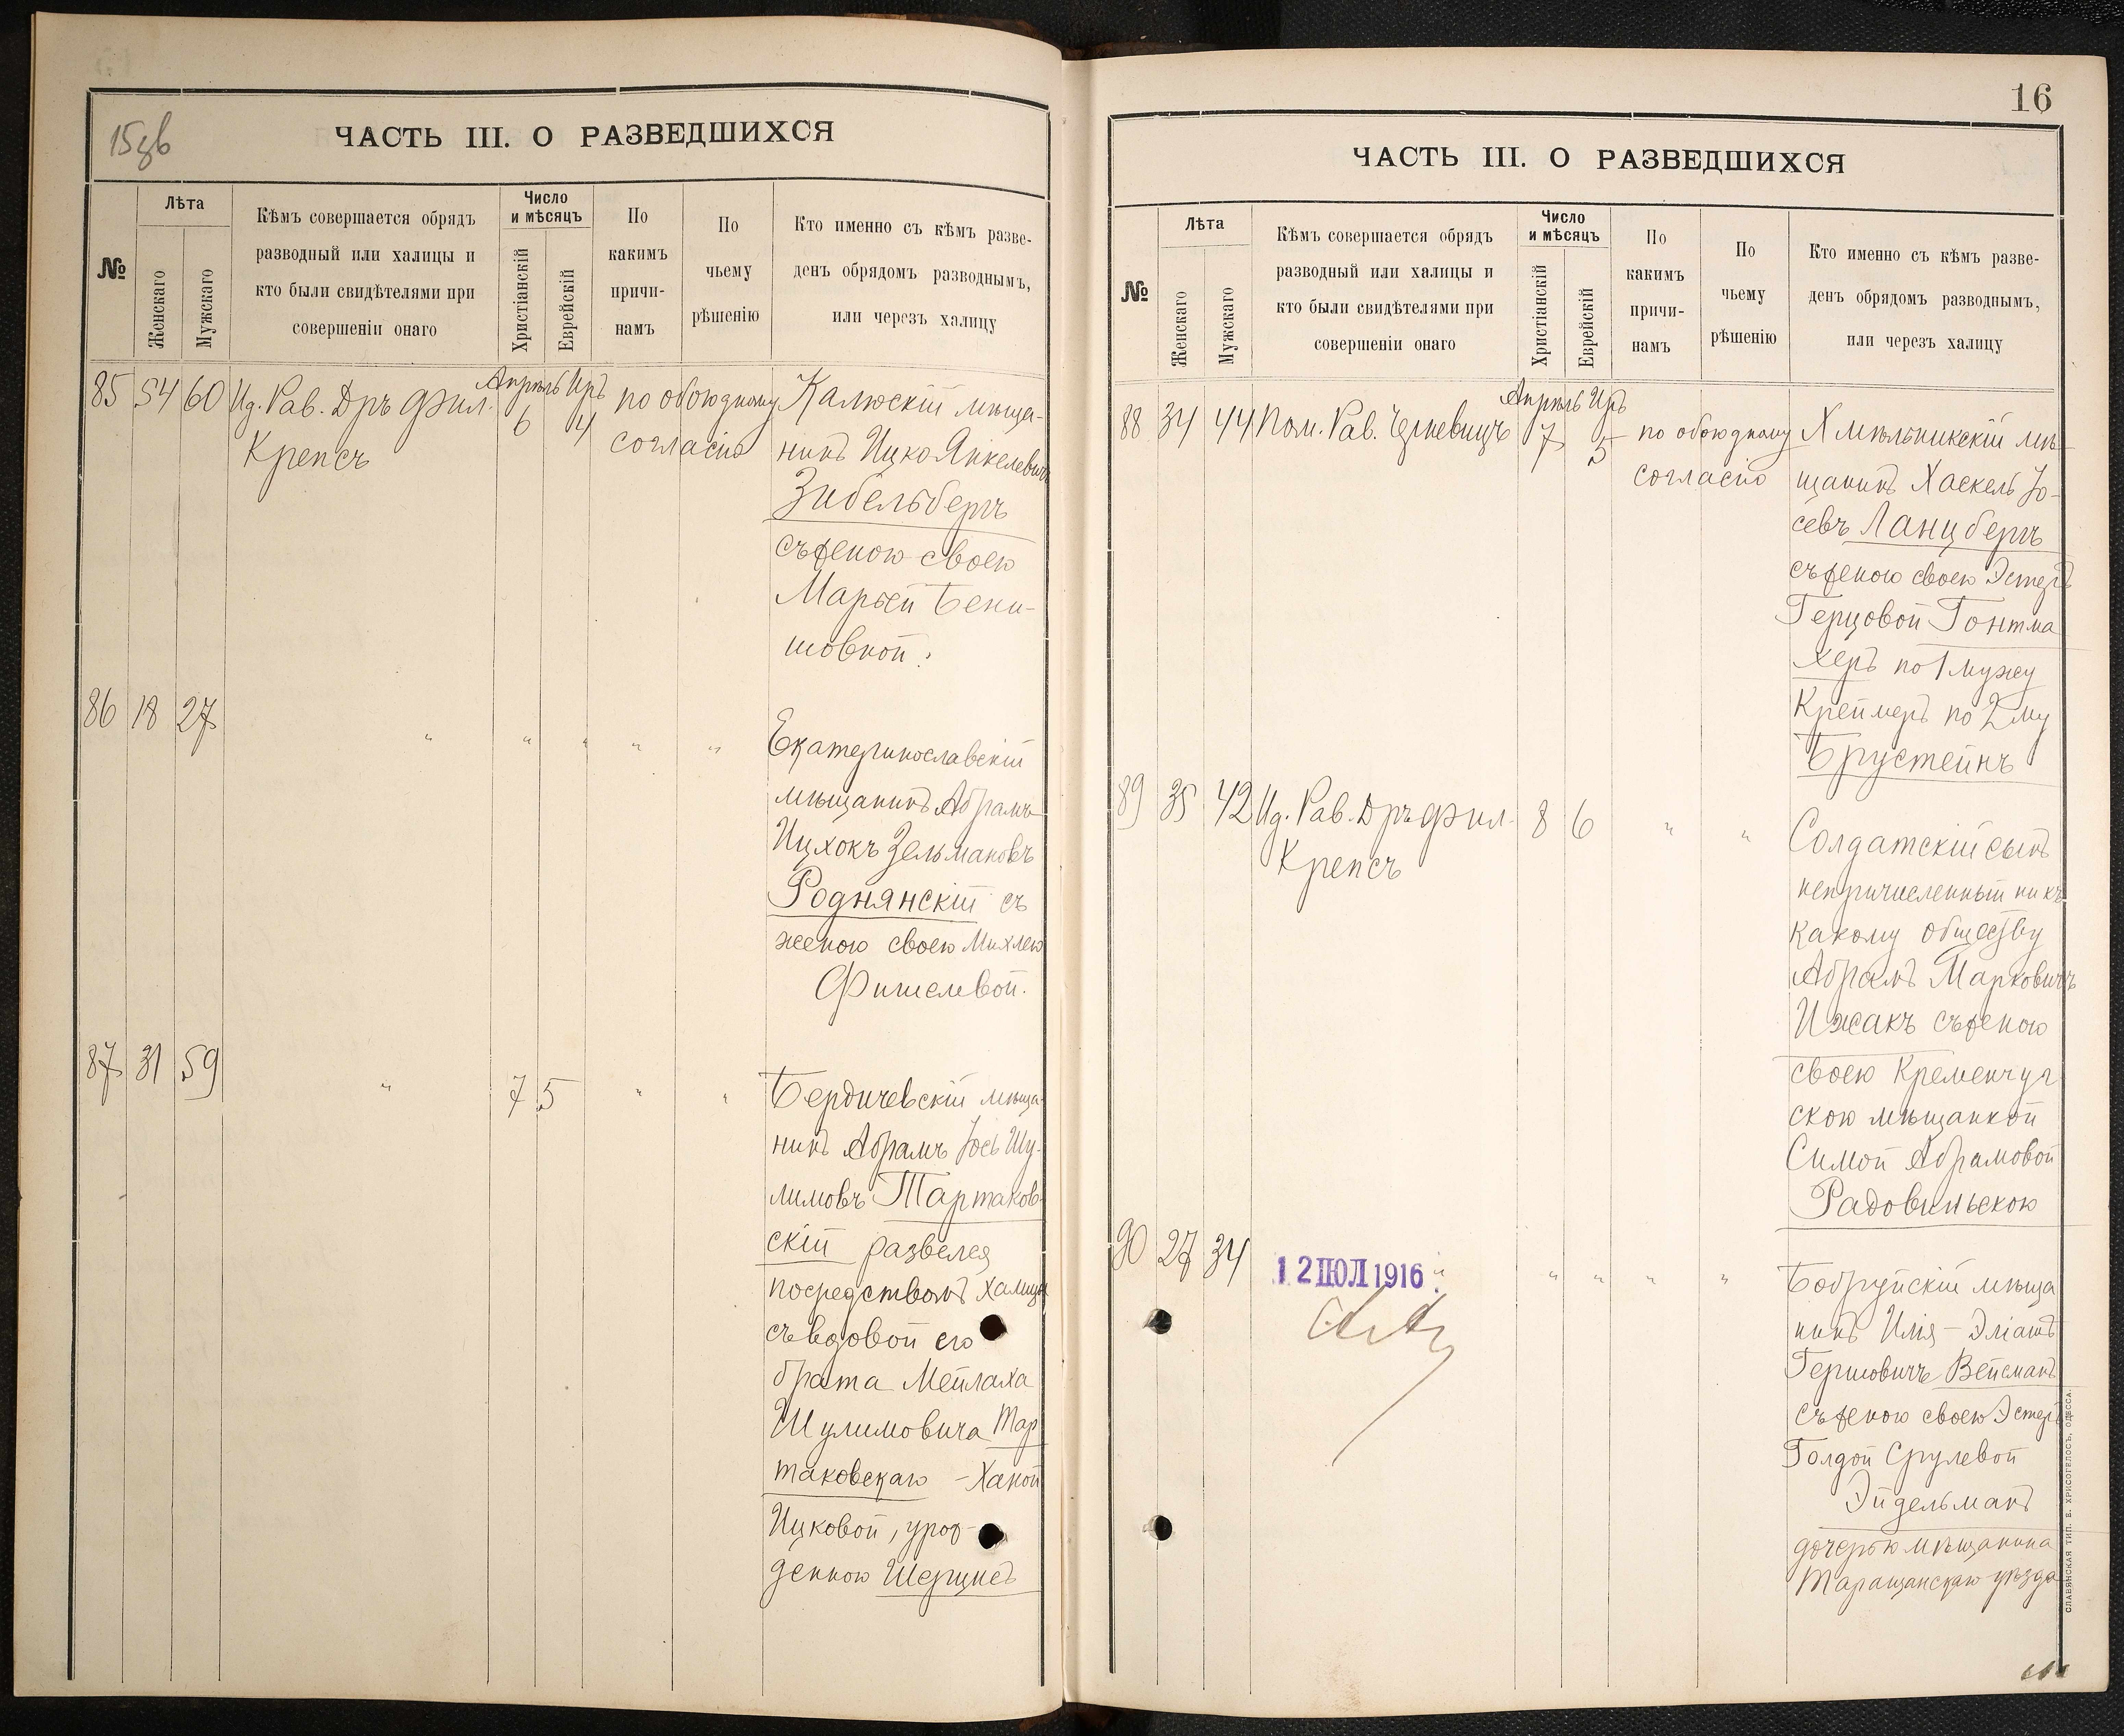 15зв
ЧАСТЬ III. О РАЗВЕДШИХСЯ
№
Лѣта
Женскаго
Мужскаго
Кѣмъ совершается обрядъ
разводный или халицы и
кто были свидѣтелями при
совершеніи онаго
Число
и мѣсяцъ
Христіанскій
Еврейскій
По
какимъ
причи-
намъ
По
чьему
рѣшенію
Кто именно съ кѣмъ разве-
денъ обрядомъ разводнымъ,
или черезъ халицу
85 54 60 Ид. Рав. Дръ Фил.
Крепсъ
Апрѣль Иръ
6 4
по обоюдному
согласію
Калюскій мѣща-
нинъ Ицко Янкелевичъ
Зибельбергъ
съ женою своею
Марьей Бени-
шовной.
86 18 27 " " " " "
Екатеринославскій
мѣщанинъ Абрамъ
Ицхокъ Зельмановъ
Роднянскій съ
женою своею Михлею
Фишелевой.
87 31 59 " 7 5 " "
Бердичевскій мѣща-
нинъ Абрамъ Іось Шу-
лимовъ Тартаков-
скій развелся
посредствомъ халицы
съ вдовой его
брата Мейлаха
Шулимовича Тар
таковскаго - Ханой
Ицковой, урож-
денною Шерцисъ
16
ЧАСТЬ III. О РАЗВЕДШИХСЯ
№
Лѣта
Женскаго
Мужскаго
Кѣмъ совершается обрядъ
разводный или халицы и
кто были свидѣтелями при
совершеніи онаго
Число
и мѣсяцъ
Христіанскій
Еврейскій
По
какимъ
причи-
намъ
По
чьему
рѣшенію
Кто именно съ кѣмъ разве-
денъ обрядомъ разводнымъ,
или черезъ халицу
88 34 44 Пом. Рав.
Апрѣль Иръ
7 5
по обоюдному
согласію
Хмѣльникскій мѣ-
щанинъ Хаскель Іо-
севъ Ланцбергъ
съ женою своею Эстеръ
Герцовой Гонтма
херъ по 1 мужу
Креймеръ по 2му
Брустейнъ
89 35 42 Ид. Рав. Дръ Фил.
Крепсъ
8 6 " "
Солдатскій сынъ
непричисленный ни къ
какому обществу
Абрамъ Марковичъ
Ижакъ съ женою
своею Кременчуг
скою мѣщанкой
Симой Абрамовой
Радовильскою
90 27 34 " " " " "
12 ІЮЛ 1916
Бобруйскій мѣща
нинъ Илія - Эліашъ
Гершовичъ Вейсманъ
съ женою своею Эстеръ
Голдой Срулевой
Эйдельманъ
дочерью мѣщанина
Таращанскаго уѣзда
СЛАВЯНСКАЯ ТИП. Е. ХРИСОГЕЛОСЪ, ОДЕССА.